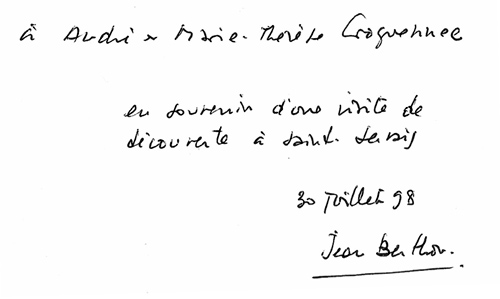 à André & Marie-Thérèse Croguennec
en souvenir d'une visite de
découverte à Saint-Servais
30 juillet 98
Jean Berthou.